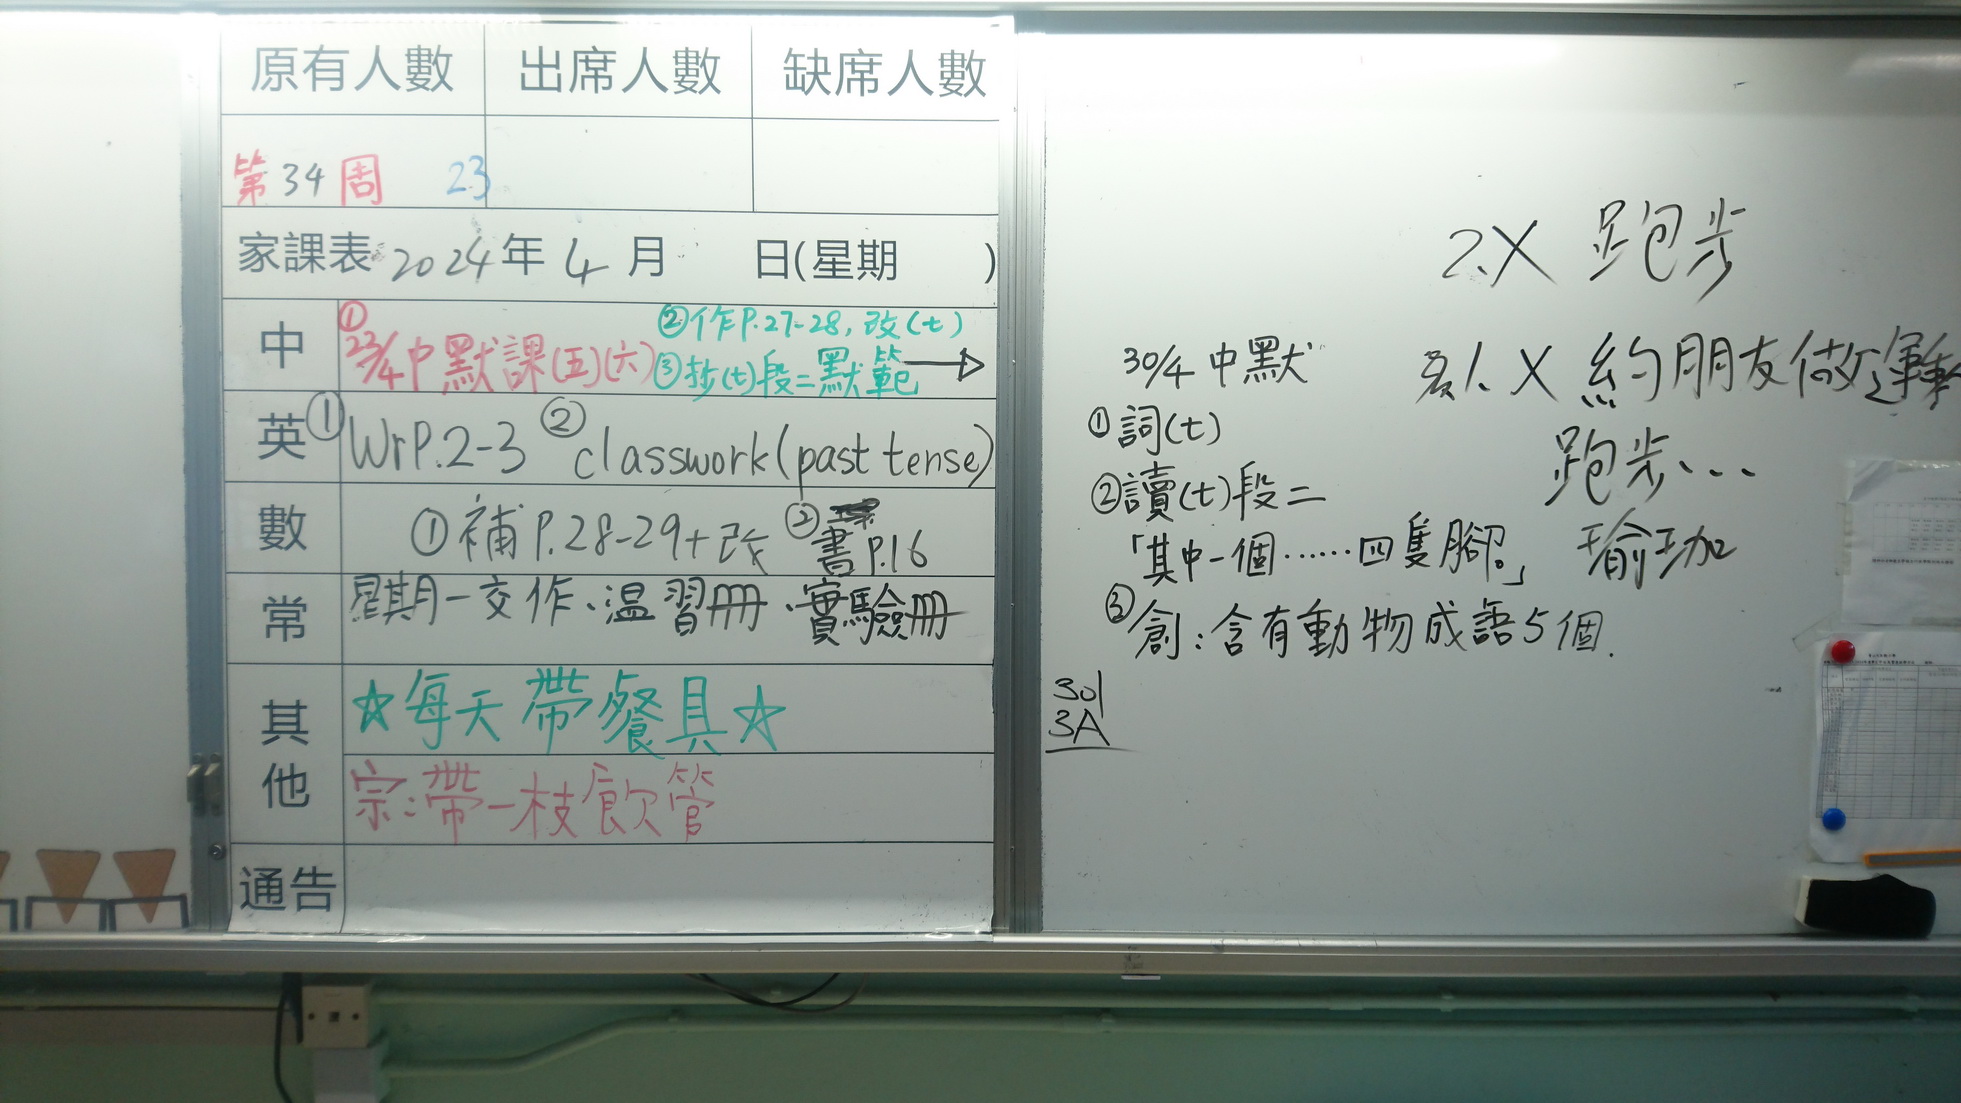 原有人數 出席人數 缺席人數
第34周 23
家課表 2024年4月 日(星期 )
中 ① 23/4中默課(五)(六) ②作P.27-28, 改(七)
③抄(七)段二默範 →
英 ①Wr P.2-3 ②classwork(past tense)
數 ①補P.28-29+改 ②書P.16
常 星期一交作、温習冊、實驗冊
其他 ☆每天帶餐具☆
宗:帶一枝飲管
通告
2.X 跑步
X 約朋友做運動
跑步...
瑜珈
30/4 中默
①詞(七)
②讀(七)段二
「其中一個……四隻腳。」
③創:含有動物成語5個.
301
3A